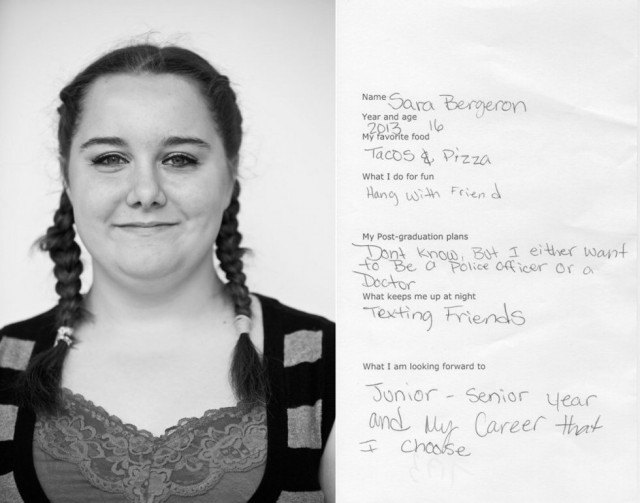 Name Sara Bergeron
Year and age
2013 16
My favorite food
Tacos & Pizza
What I do for fun
Hang with Friend
My Post-graduation plans
Dont know, But I either want
to Be a Police officer or a
Doctor
What keeps me up at night
Texting Friends
What I am looking forward to
Junior - senior year
and My Career that
I choose